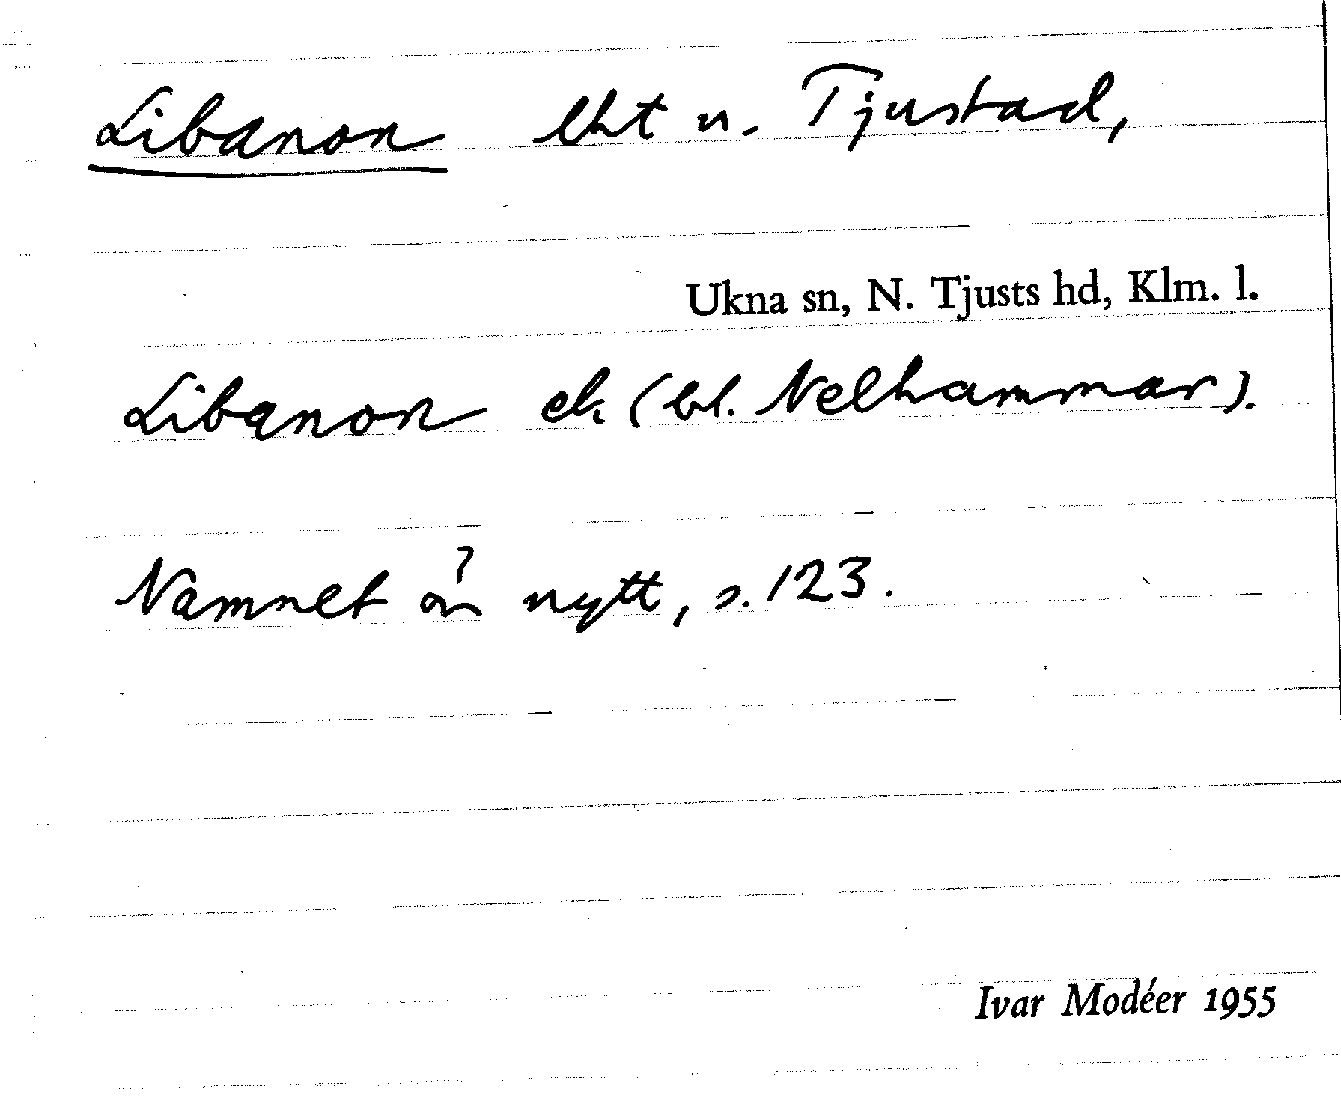 Libanon lht u. Tjustad,
Ukna sn, N. Tjusts hd, Klm. l.
Libanon ek (bl. Nelhammar).
Namnet är nytt, s. 123.
Ivar Modéer 1955